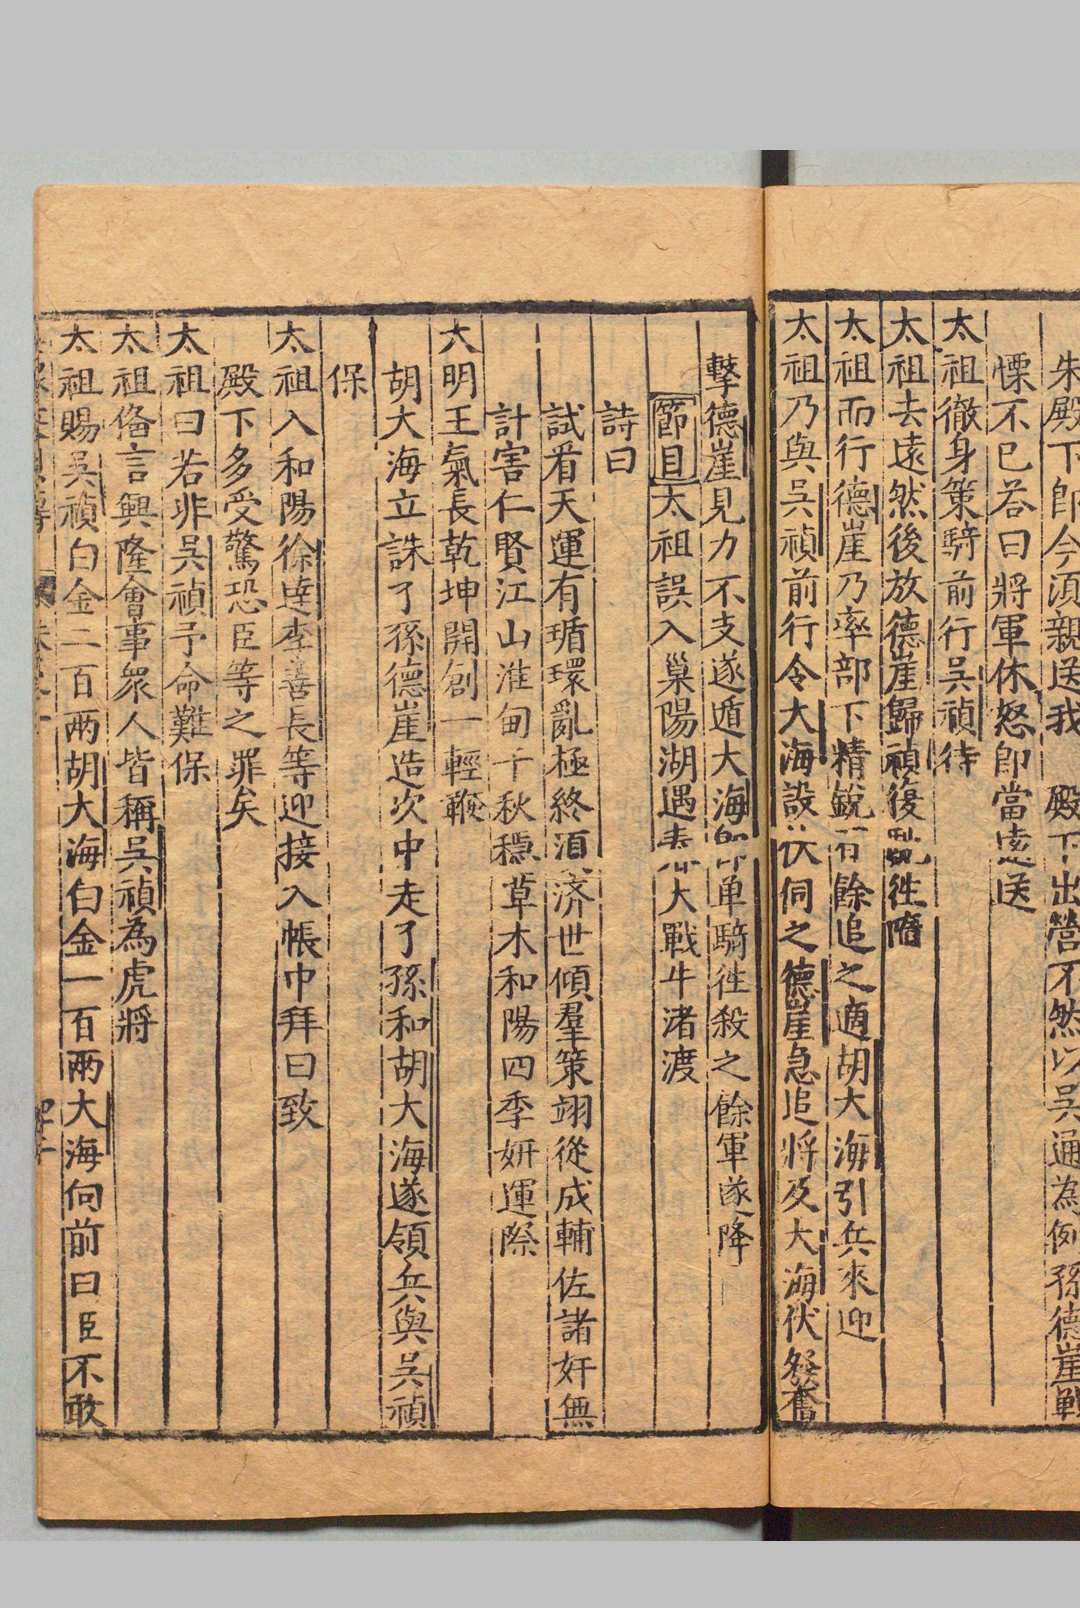 朱殿下即今須親送我 殿下出營不然以吳通為例孫德崖戰
慄不已荅曰將軍休怒即當遠送
太祖徹身策騎前行吳禎待
太祖去遠然後放德崖歸禎復
太祖而行德崖乃率部下精銳百餘追之適胡大海引兵來迎
太祖乃與吳禎前行令大海設伏伺之德崖急追將及大海伏發奮
擊德崖見力不支遂遁大海即單騎徃殺之餘軍遂降
節目太祖誤入巢陽湖遇 大戰牛渚渡
詩曰
試看天運有循環亂極終須濟世傾羣策翊從成輔佐諸奸無
計害仁賢江山淮甸千秋穩草木和陽四季妍運際
大明王氣長乾坤開創一輕鞭
胡大海立誅了孫德崖造次中走了孫和胡大海遂領兵與吳禎
保
太祖入和陽徐達李善長等迎接入帳中拜曰致
殿下多受驚恐臣等之罪矣
太祖曰若非吳禎予命難保
太祖俻言興隆會事衆人皆稱吳禎為虎將
太祖賜吳禎白金二百兩胡大海白金一百兩大海向前曰臣不敢